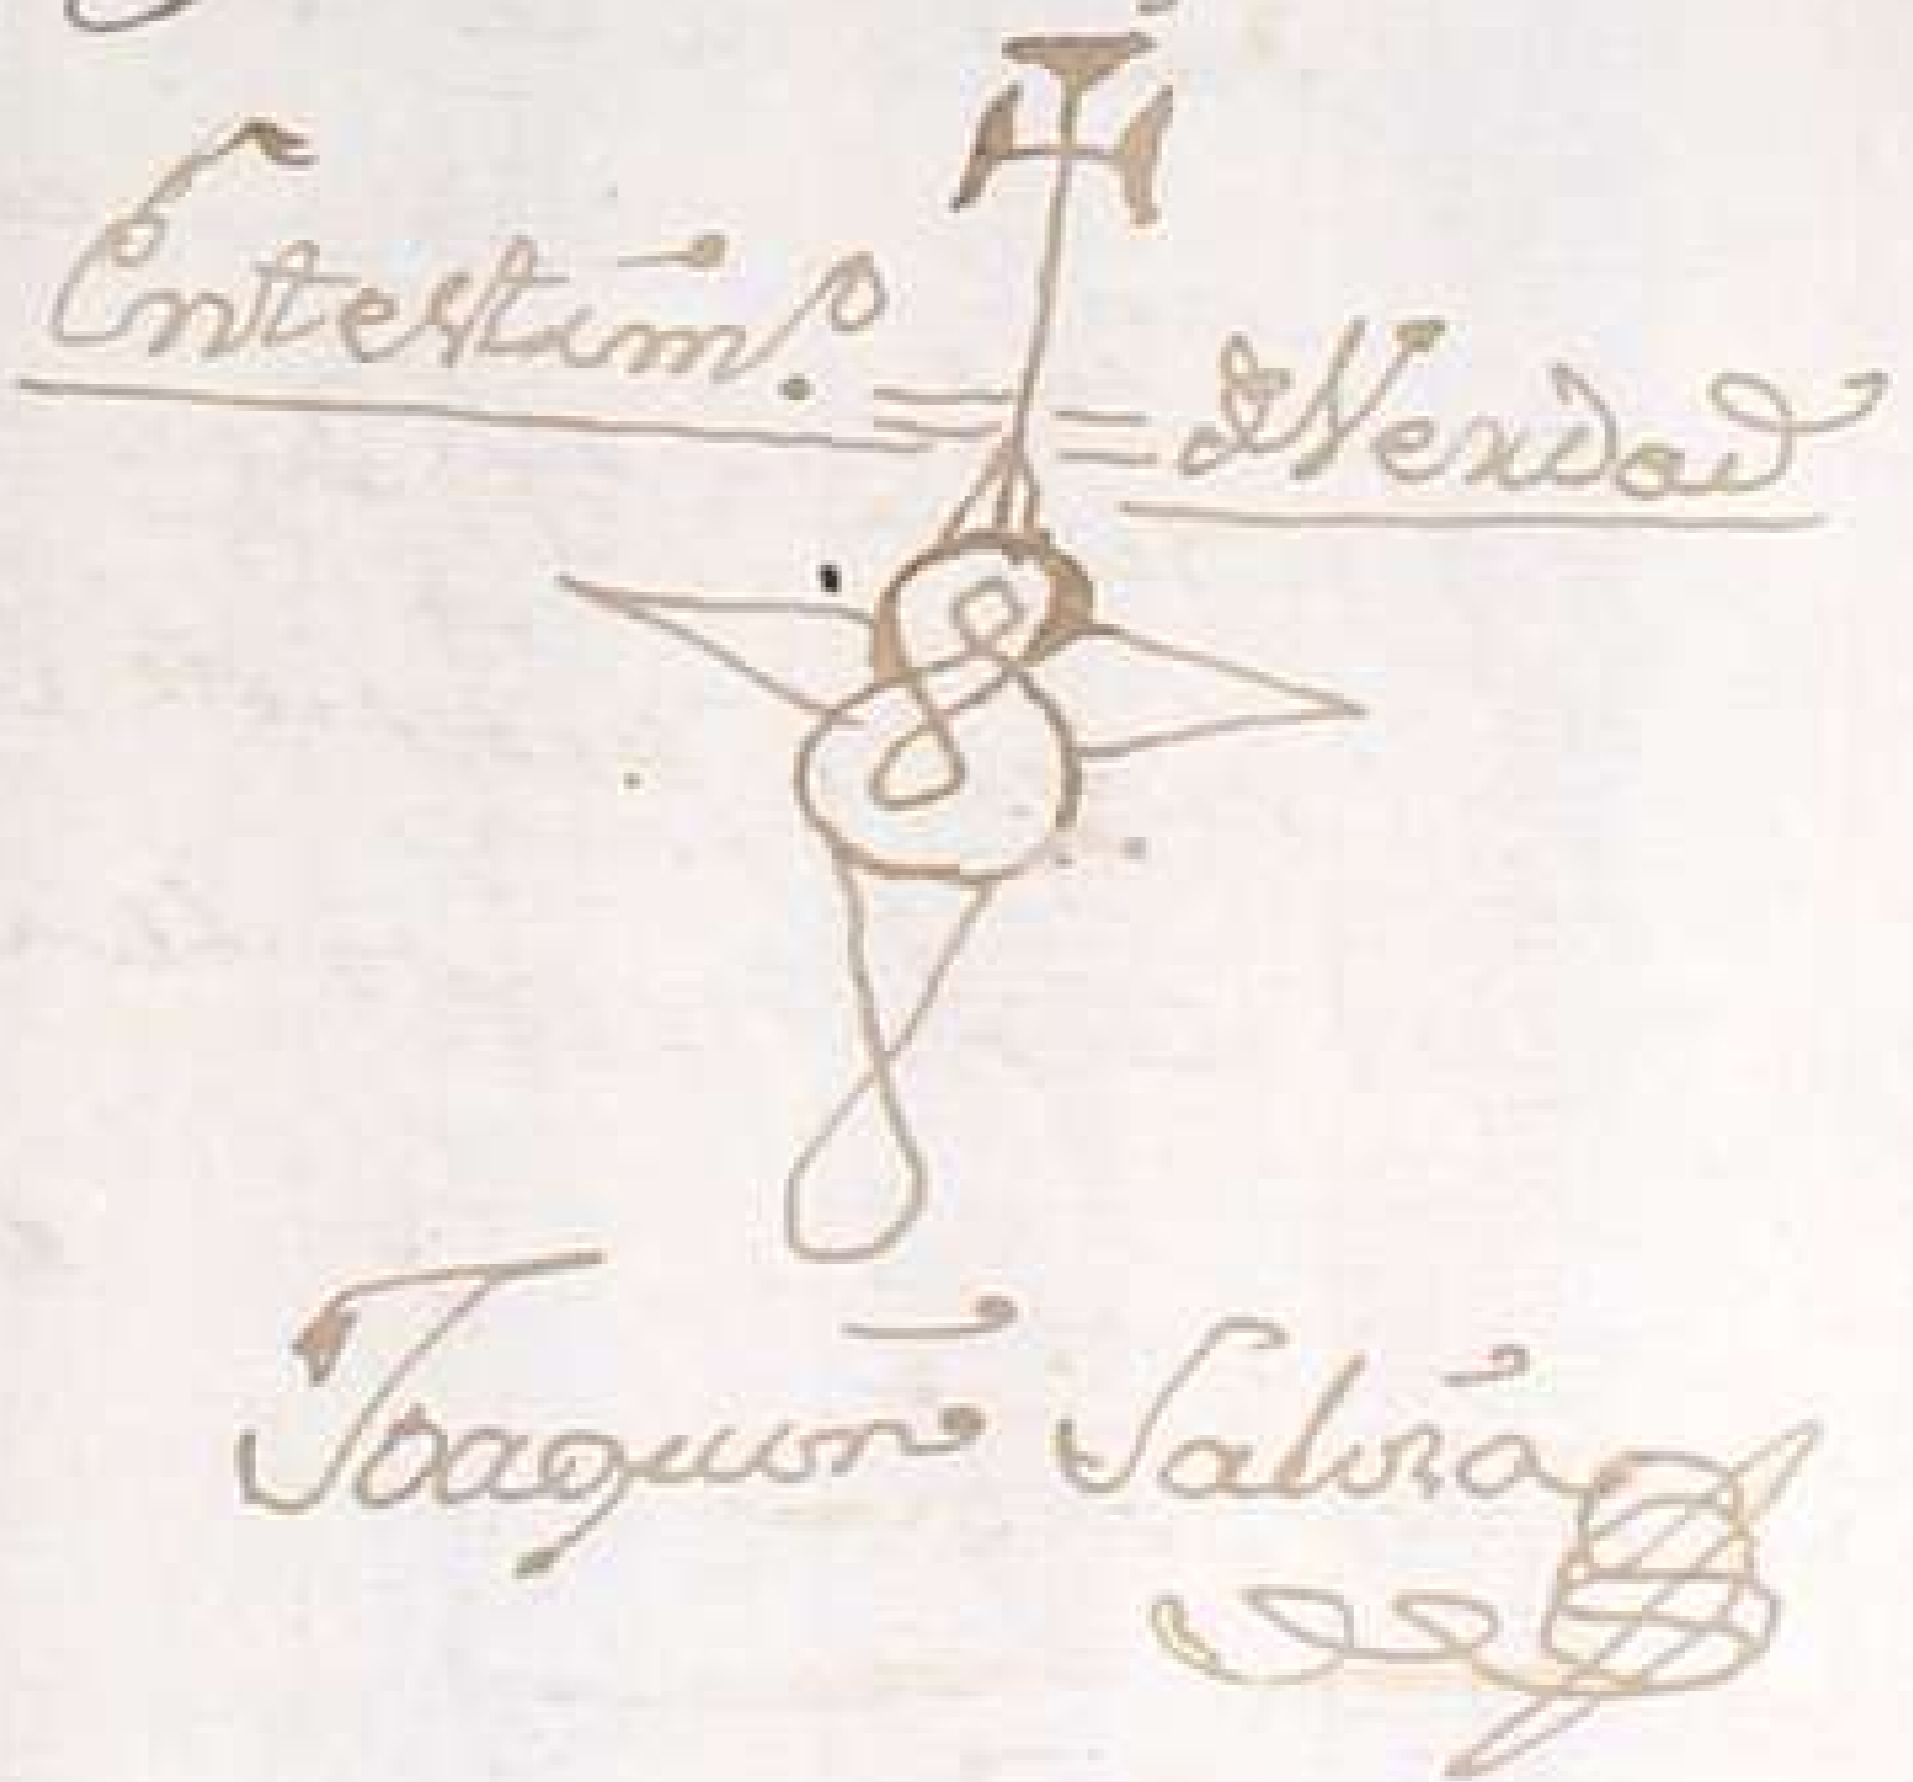 Entestim.o de Verdad
Joaquin Salvia